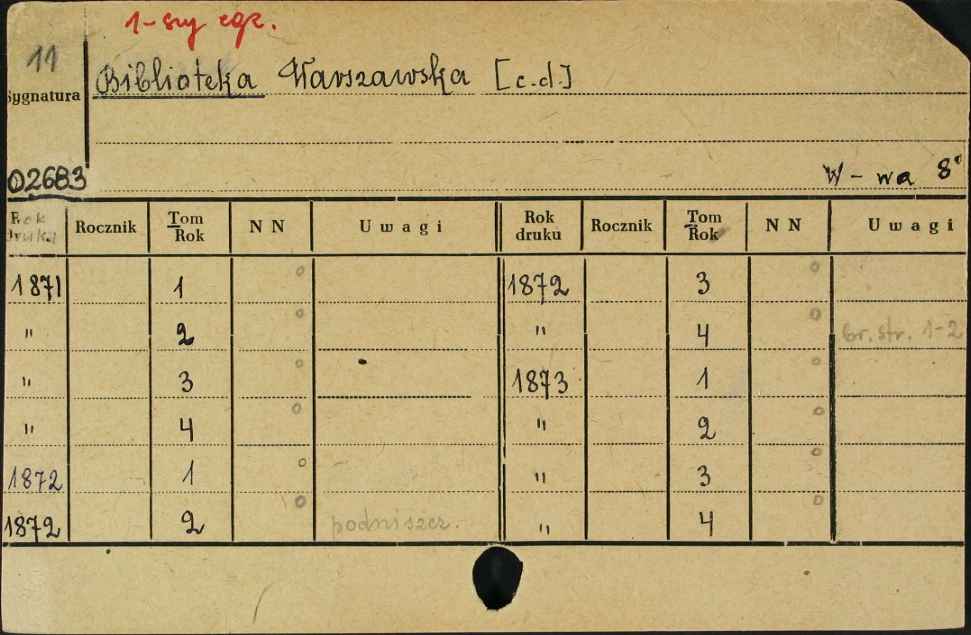 1-szy egz.
11
Biblioteka Warszawska [c.d.]
Sygnatura
02683
W-wa 8°
Rok druku Rocznik Tom Rok N N Uwagi Rok druku Rocznik Tom Rok N N Uwagi
1871 1 o 1872 3 o
" 2 o " 4 o br. str. 1-2
" 3 o 1873 1 o
" 4 o " 2 o
1872 1 o " 3 o
1872 2 o podniszcz. " 4 o